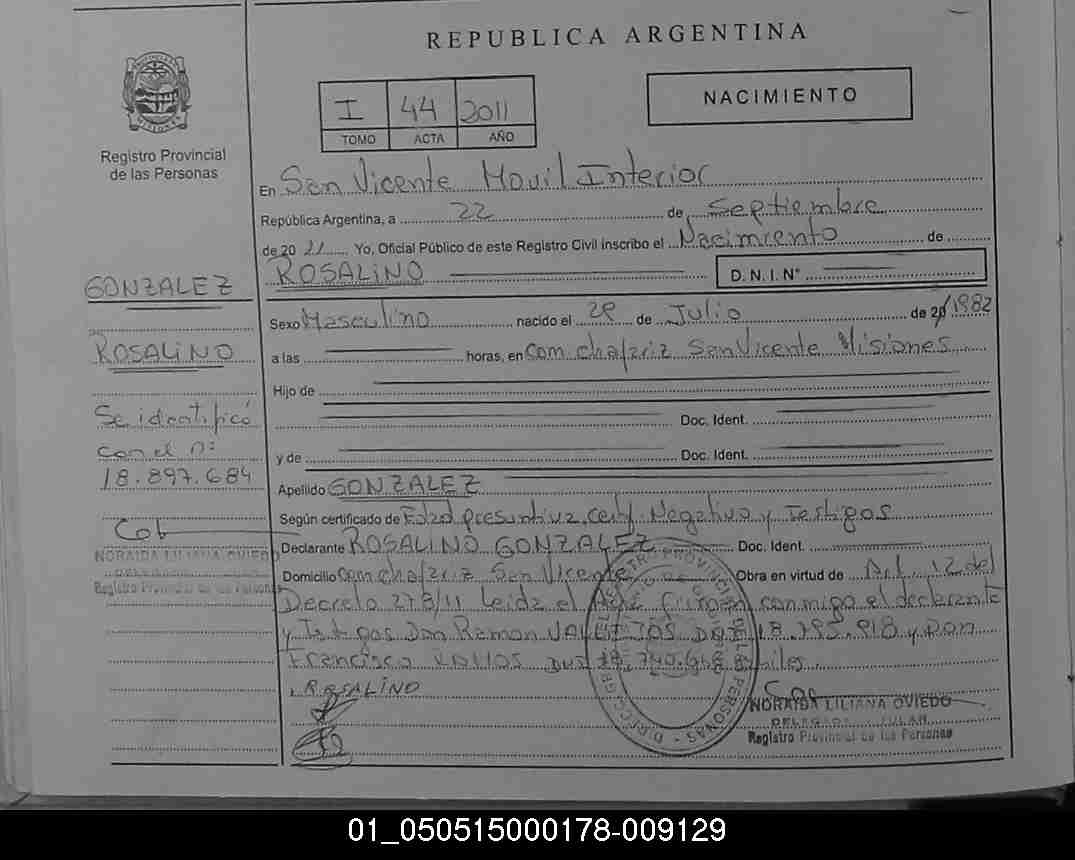 REPUBLICA ARGENTINA
I 44 2011
TOMO ACTA AÑO
NACIMIENTO
Registro Provincial
de las Personas
GONZALEZ
ROSALINO
Se identificó
con el nº
18.897.684
NORAIDA LILIANA OVIEDO
Registro Provincial de las Personas
En San Vicente Movil Interior
República Argentina, a 22 de Septiembre
de 20 11 Yo, Oficial Público de este Registro Civil inscribo el Nacimiento de
ROSALINO D. N. I. N°
Sexo Masculino nacido el 29 de Julio de 20/1982
a las horas, en San Vicente Misiones
Hijo de
Doc. Ident.
y de Doc. Ident.
Apellido GONZALEZ
Según certificado de Edad presuntiva, cert. Negativo y Testigos
Declarante ROSALINO GONZALEZ Doc. Ident.
Domicilio San Vicente Obra en virtud de Art. 12 del
Decreto 278/11 Leida el Acta Firman conmigo el declarante
y Testigos Don Ramon DNI y Don
Francisco RAMOS DNI
ROSALINO
NORAIDA LILIANA OVIEDO
DELEGADA TITULAR
Registro Provincial de las Personas
01_050515000178-009129